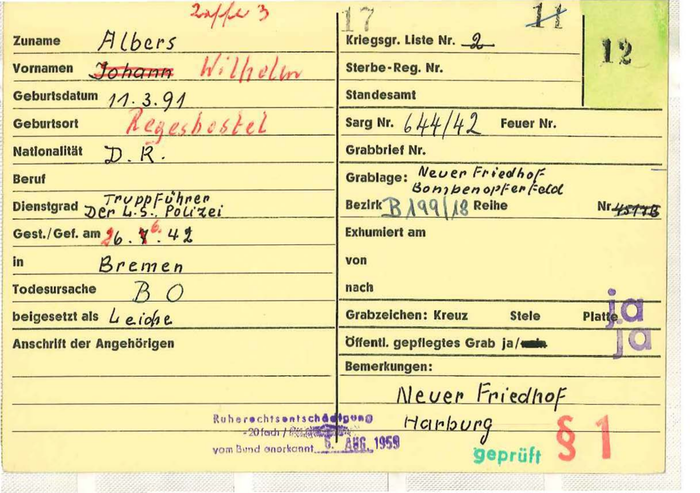 2 affe 3
17
11
12
Zuname Albers
Vornamen Johann Wilhelm
Geburtsdatum 11.3.91
Geburtsort Regesbostel
Nationalität D.R.
Beruf
Dienstgrad Truppführer
Der L.S. Polizei
Gest./Gef. am 26. 6. 42
in Bremen
Todesursache B O
beigesetzt als Leiche
Anschrift der Angehörigen
Ruherechtsentschädigung
-20fach /
vom Bund anerkannt 6. AUG. 1959
Kriegsgr. Liste Nr. 2
Sterbe-Reg. Nr.
Standesamt
Sarg Nr. 644/42 Feuer Nr.
Grabbrief Nr.
Grablage: Neuer Friedhof
Bombenopferfeld
Bezirk B199/18 Reihe Nr.
Exhumiert am
von
nach
Grabzeichen: Kreuz Stele Platte ja
Öffentl. gepflegtes Grab ja/ ja
Bemerkungen:
Neuer Friedhof
Harburg
geprüft § 1